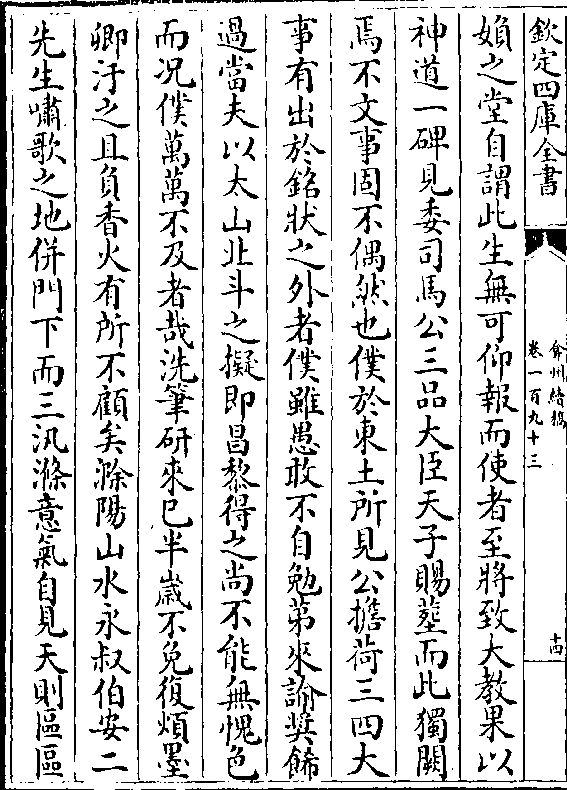 欽定四庫全書
弇州續稿
卷一百九十三
十四
媍之堂自謂此生無可仰報而使者至將致大教果以
神道一碑見委司馬公三品大臣天子賜塟而此獨闕
焉不文事固不偶然也僕於東土所見公擔荷三四大
事有出於銘狀之外者僕雖愚敢不自勉第來諭奨餙
過當夫以太山北斗之擬即昌黎得之尚不能無愧色
而况僕萬萬不及者哉洗筆研來已半嵗不免復煩墨
卿汙之且負香火有所不顧矣滁陽山水永叔伯安二
先生嘯歌之地併門下而三汛滌意氣自見天則區區